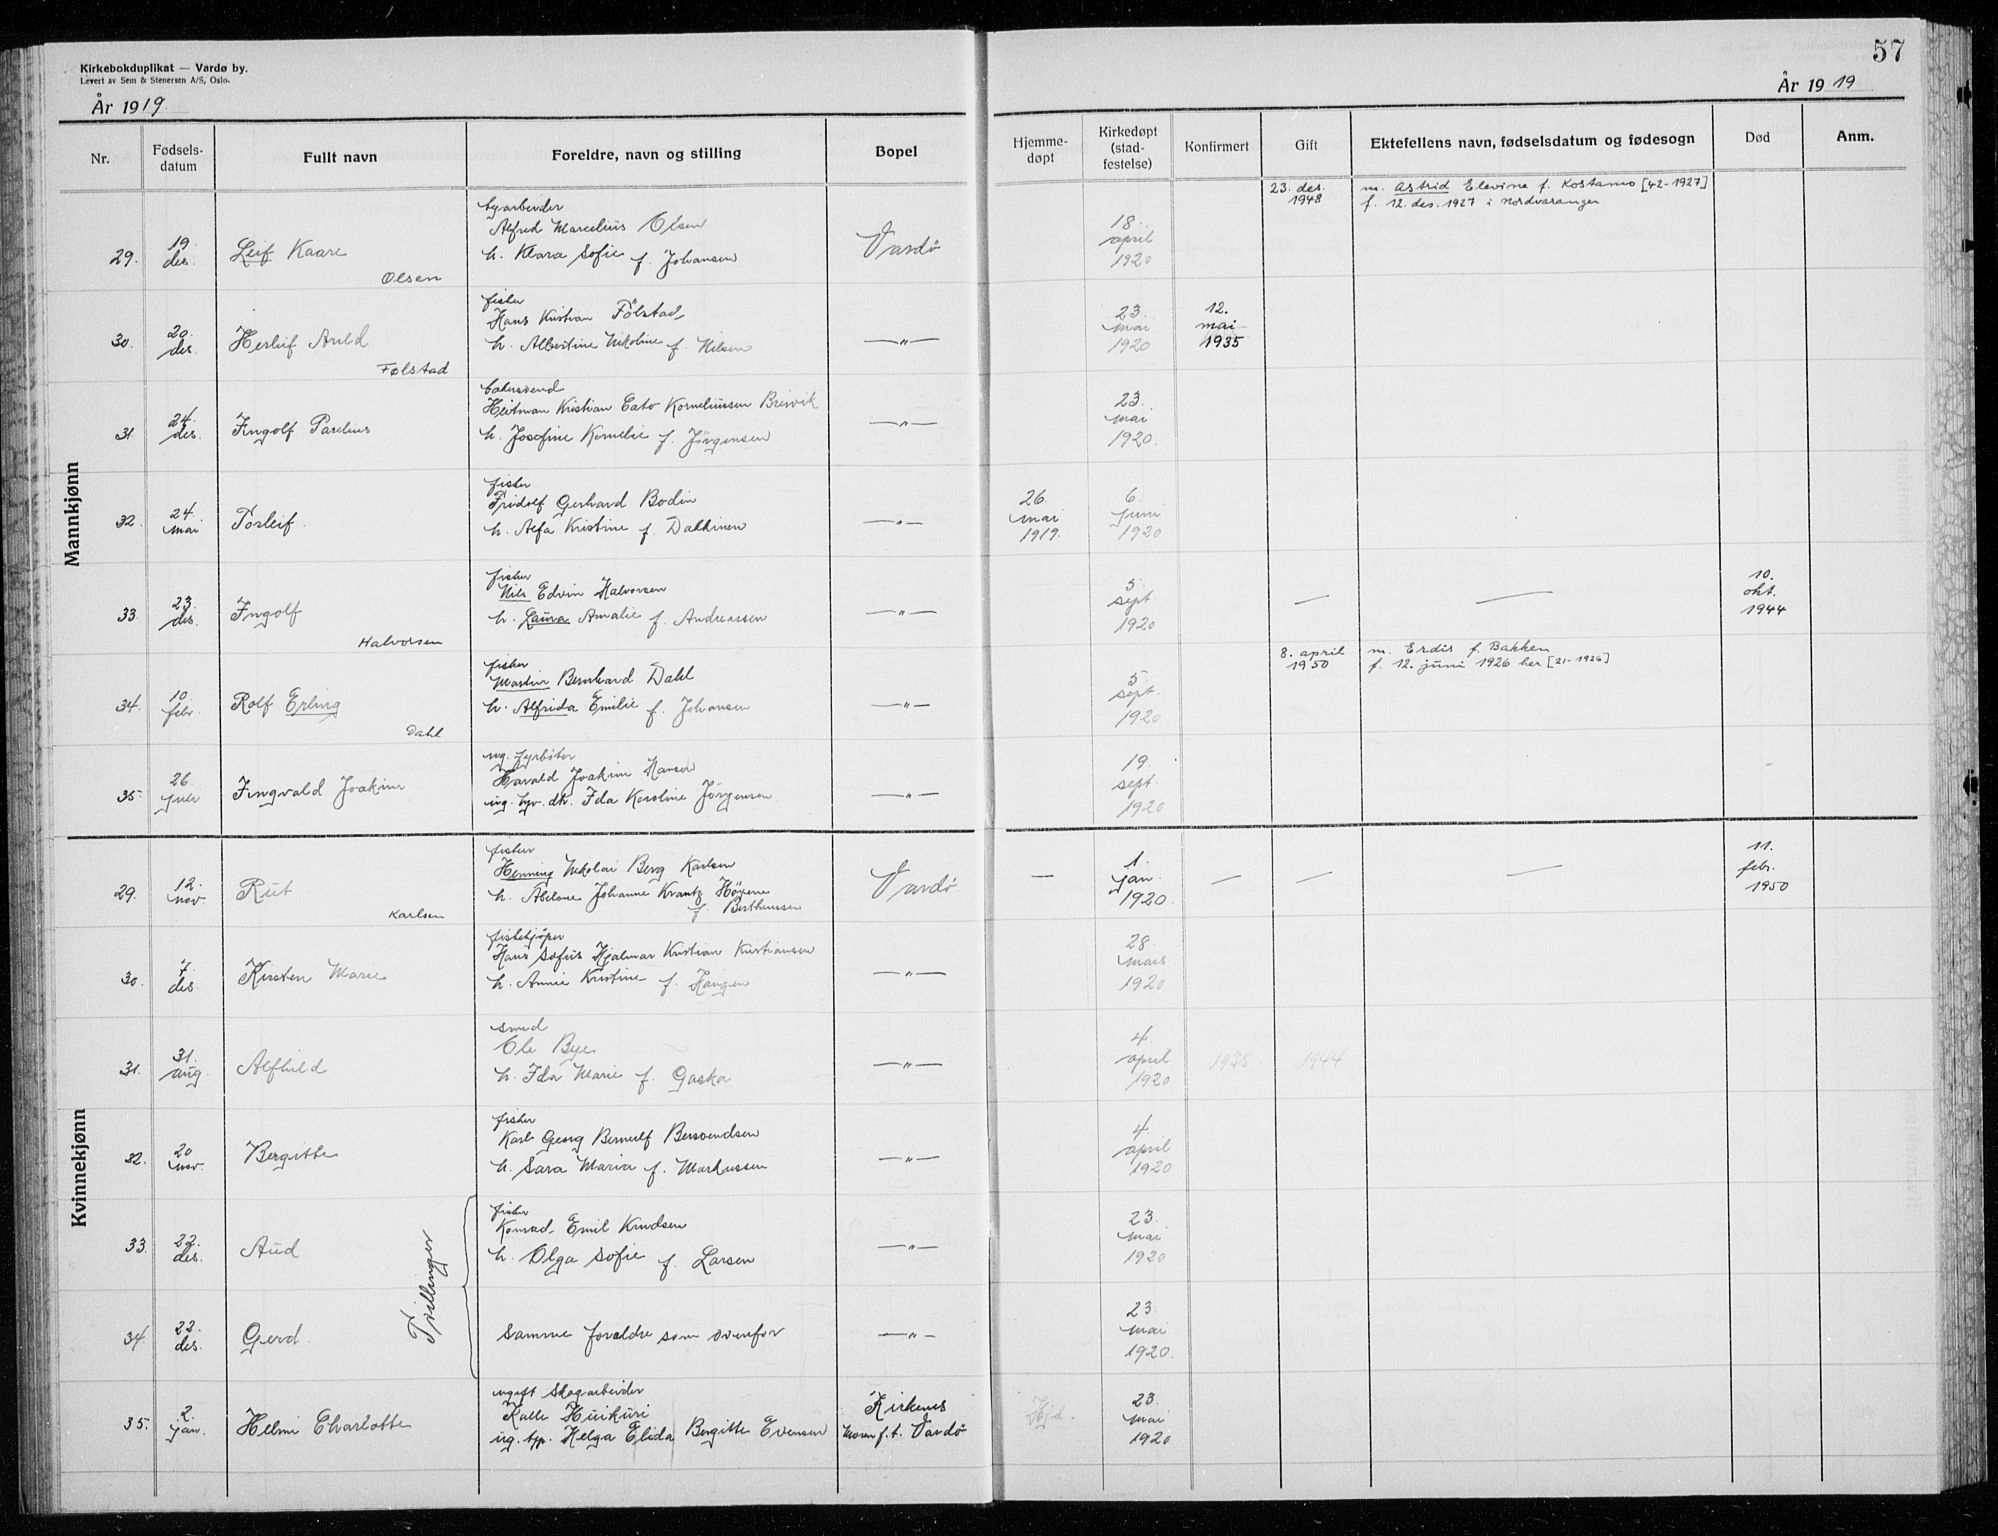 57
Kirkebokduplikat — Vardø by.
Levert av Sem & Stenersen A/S, Oslo.
År 1919.
År 1919
Nr.
Fødsels-
datum
Fullt navn
Foreldre, navn og stilling
Bopel
Hjemme-
døpt
Kirkedøpt
(stad-
festelse)
Konfirmert
Gift
Ektefellens navn, fødselsdatum og fødesogn
Død
Anm.
Mannkjønn
29.
19.
des.
Leif Kaare
Olsen
byarbeider
Alfred Marcelius Olsen
h. Klara Sofie f. Johansen
Vardø
18.
april
1920
23. des.
1948
m. Astrid Elevine f. Kostamo [42-1927]
f. 12. des. 1927 i Nordvaranger
30.
20.
des.
Herleif Arild
Følstad
fisker
Hans Kristian Fölstad
h. Albertine Nikoline f. Nilsen
—„—
23.
mai
1920
12.
mai
1935
31.
24.
des.
Ingolf Parelius
bakersvend
Heitman Kristian Cato Korneliussen Breivik
h. Josefine Kornelie f. Jörgensen
—„—
23.
mai
1920.
32.
24.
mai
Torleif.
fisker
Fridolf Gerhard Bodin
h. Alfa Kristine f. Dakkinen
—„—
26.
mai
1919.
6.
juni
1920
33.
23.
des.
Ingolf
Halvorsen
fisker
Nils Edvin Halvorsen
h. Laura Amalie f. Andreassen
—„—
5.
sept
1920
—
—
10.
okt.
1944
34.
10.
febr.
Rolf Erling
Dahl
fisker
Martin Bernhard Dahl
h. Alfrida Emilie f. Johansen
—„—
5.
sept.
1920
8. april
1950
m. Erdis f. Bakken
f. 12. juni 1926 her [21-1926]
35.
26
juli
Ingvald Joakim
ug. fyrbøter
Harald Joakim Hansen
ug. hv. dt. Ida Karoline Jörgensen
—„—
19.
sept.
1920
Kvinnekjønn
29.
12.
nov.
Rut
Karlsen
fisker
Henning Nikolai Berg Karlsen
h. Abelone Johanne Krantz Höyene
f. Berthensen
Vardø
—
1.
jan.
1920.
—
—
—
11.
febr.
1950
30.
7.
des.
Kirsten Marie
fiskekjøper
Hans Sofus Hjalmar Kristian Kristiansen
h. Annie Kristine f. Haugen
—„—
28.
mars
1920
31.
31.
aug.
Alfhild
smed
Ole Bye
h. Ida Marie f. Gaska
—„—
4.
april
1920
1935
1944
32.
20
nov.
Bergitte
fisker
Karl Georg Bernulf Bersvendsen
h. Sara Maria f. Markussen
—„—
4.
april
1920
33.
22.
des.
Aud
Trillinger
fisker
Konrad Emil Knudsen
h. Olga Sofie f. Larsen
—„—
23.
mai
1920
34.
22.
des.
Gerd.
Samme foreldre som ovenfor
—„—
23.
mai
1920.
35.
2.
jan.
Helmi Charlotte
ugift Skogarbeider
Kalle Huikuri
ug. tjp. Helga Elida Bergitte Evensen
Kirkenes
Moren f. t. Vardø
Hjd.
23.
mai
1920